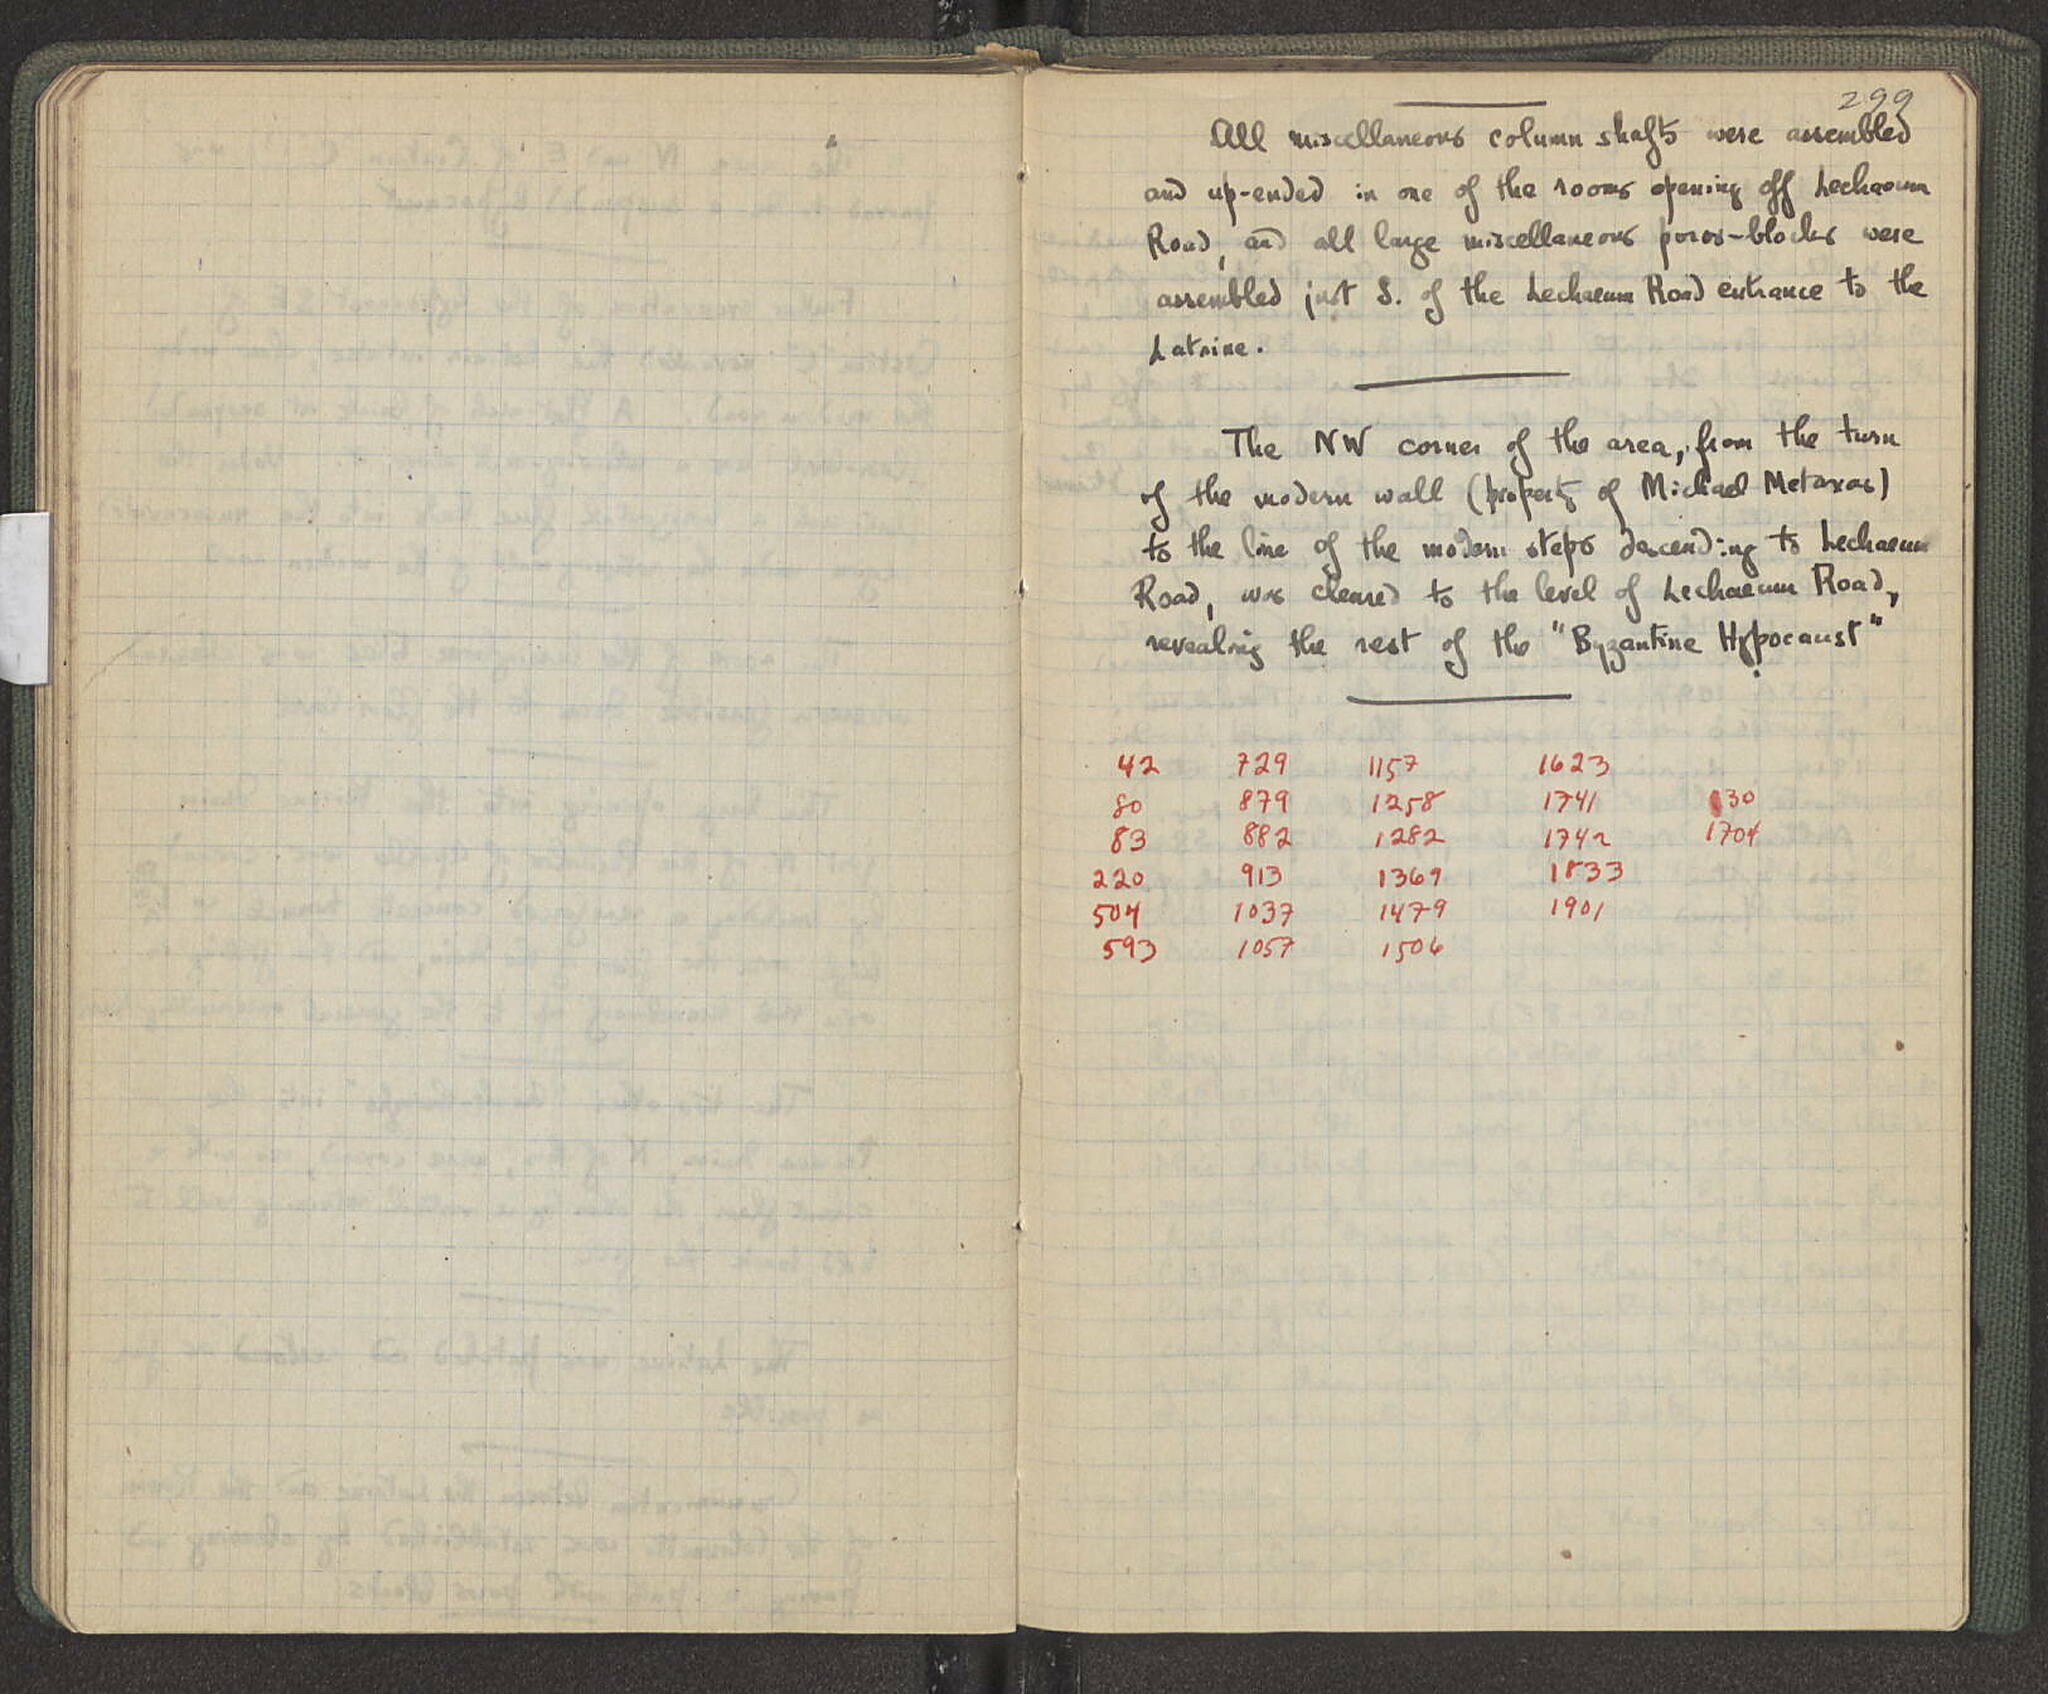 299
All miscellaneous column shafts were assembled
and up-ended in one of the rooms opening off Lechaeum
Road, and all large miscellaneous poros-blocks were
assembled just S. of the Lechaeum Road entrance to the
Latrine.
The NW corner of the area, from the turn
of the modern wall (property of Michael Metaxas)
to the line of the modern steps descending to Lechaeum
Road, was cleared to the level of Lechaeum Road,
revealing the rest of the "Byzantine Hypocaust".
42 729 1157 1623
80 879 1258 1741 30
83 882 1282 1742 1704
220 913 1369 1833
504 1037 1479 1901
593 1057 1506